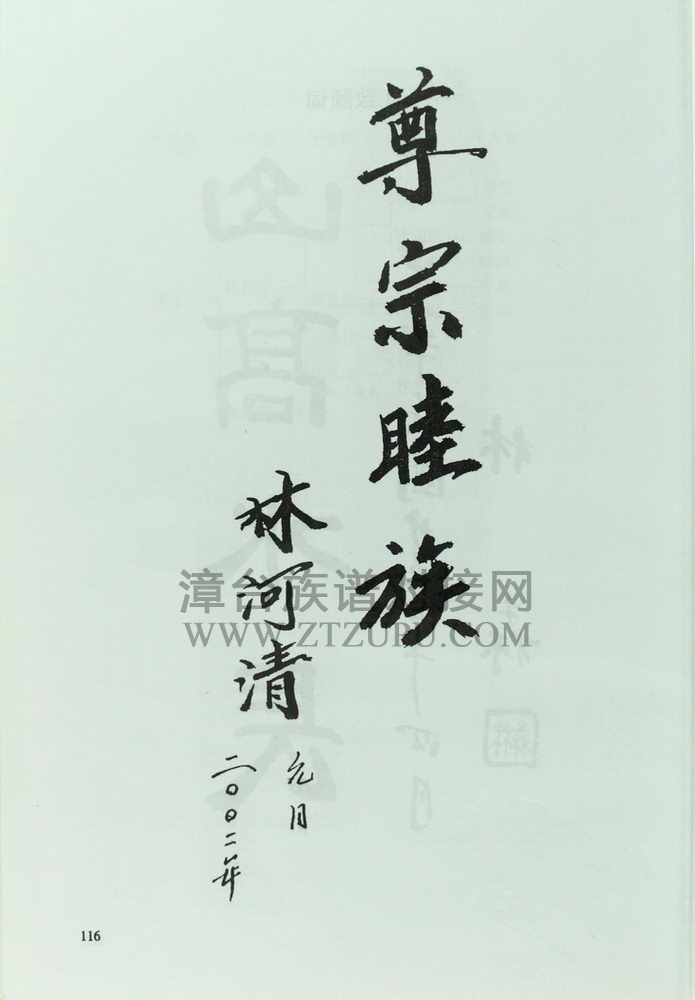 尊宗睦族
林河清
二〇〇二年
元月
漳台族谱对接网
WWW.ZTZUPU.COM
116